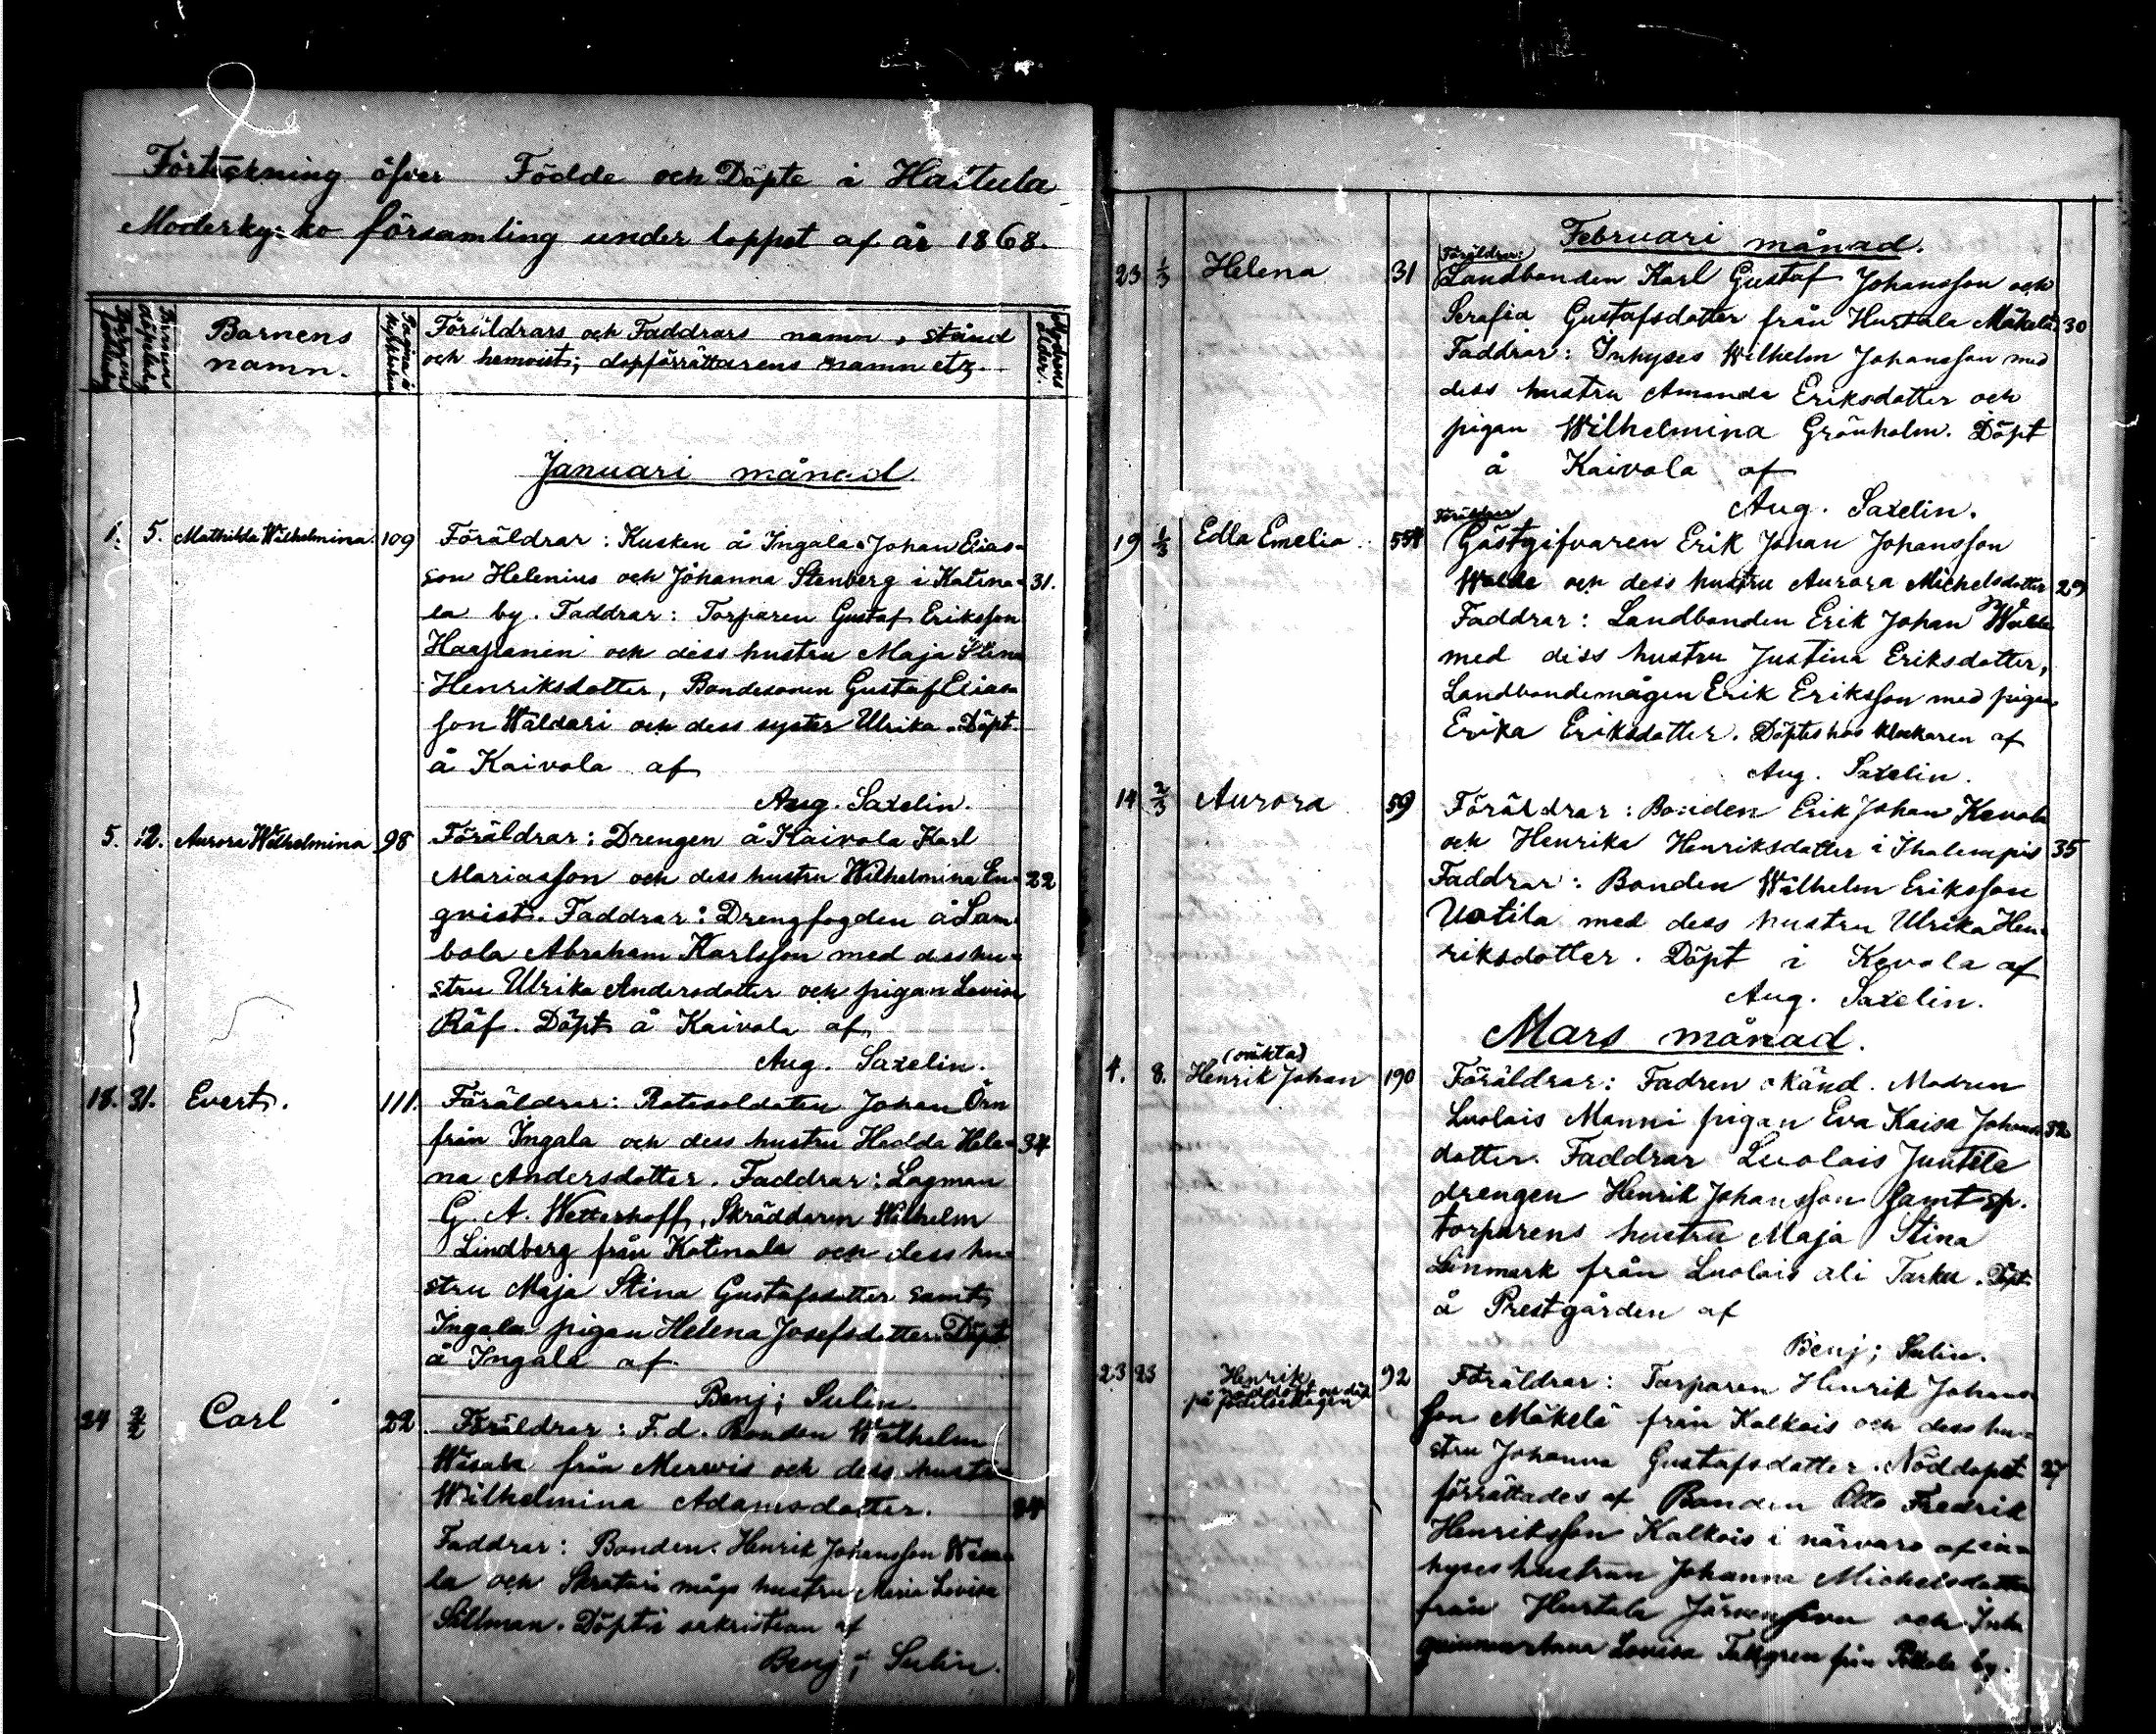 Förteckning öfver Födde och Döpte i Hattula
Moderkyrko församling under loppet af år 1868.
Barnens
namn.
Föräldrars och Faddrars namn, stånd
och hemvist; dopförrättarens namn etz.
Modrens ålder.
Januari månad.
1. 5. Mathilda Wilhelmina. 109 Föräldrar: Kusken å Ingala Johan Elias-
son Helenius och Johanna Stenberg i Katina- 31.
la by. Faddrar: Torparen Gustaf Eriksson
Haapanen och dess hustru Maja Stina
Henriksdotter, Bondesonen Gustaf Elias-
son Wäldari och dess syster Ulrika. Döpt
å Kaivola af
Aug. Saxelin.
5. 12. Aurora Wilhelmina 98 Föräldrar: Drengen å Kaivola Karl
Mariasson och dess hustru Wilhelmina En- 22
qvist. Faddrar: Drengfogden å Sam-
bola Abraham Karlsson med dess hu-
stru Ulrika Andersdotter och pigan Lovisa
Räf. Döpt å Kaivola af
Aug. Saxelin.
18. 31. Evert. 111. Föräldrar: Rotesoldaten Johan Örn
från Ingala och dess hustru Hedda Hele- 34
na Andersdotter. Faddrar: Lagman
G. A. Wetterhoff, Skräddaren Wilhelm
Lindberg från Katinala och dess hu-
stru Maja Stina Gustafsdotter samt
Ingala pigan Helena Josefsdotter. Döpt
å Ingala af
Benj; Sulin.
24 2/2 Carl 22 Föräldrar: F.d. Bonden Wilhelm
Wesala från Merwis och dess hustru
Wilhelmina Adamsdotter.
Faddrar: Bonden Henrik Johansson Wesa-
la och Skratari mågs hustru Maria Lovisa
Sillman. Döpt i sakristian af
Benj; Sulin.
Februari månad.
Föräldrar:
23 1/3 Helena 31 Landbonden Karl Gustaf Johansson och
Serafia Gustafsdotter från Hurtala Mäkelä 30
Faddrar: Inhyses Wilhelm Johansson med
dess hustru Amanda Eriksdotter och
pigan Wilhelmina Grönholm. Döpt
å Kaivola af
Aug. Saxelin.
Föräldrar
19 1/3 Edla Emelia. Gästgifvaren Erik Johan Johansson
Walde och dess hustru Aurora Michelsdotter 29
Faddrar: Landbonden Erik Johan Walde
med dess hustru Justina Eriksdotter,
Landbondemågen Erik Eriksson med pigan
Erika Eriksdotter. Döptes hos klockaren af
Aug. Saxelin.
14 2/3 Aurora 59 Föräldrar: Bonden Erik Johan Kevola
och Henrika Henriksdotter i Ihalempis 35
Faddrar: Bonden Wilhelm Eriksson
Uotila med dess hustru Ulrika Hen-
riksdotter. Döpt i Kevola af
Aug. Saxelin.
Mars månad.
(oäkta)
4. 8. Henrik Johan 190 Föräldrar: Fadren okänd. Modren
Luolais Manni pigan Eva Kaisa Johans- 32
dotter. Faddrar Luolais Juutila
drengen Henrik Johansson samt sp.
torparens hustru Maja Stina
Linmark från Luolais ali Tarku. Döpt
å Prestgården af
Benj; Sulin.
23 23 Henrik 92 Föräldrar: Torparen Henrik Johans-
nöddöpt och död
på födelsedagen
son Mäkelä från Kalkois och dess hu-
stru Johanna Gustafsdotter. Nöddopet 27
förrättades af Bonden Otto Fredrik
Henriksson Kalkois i närvaro af in-
hyses hustrun Johanna Michelsdotter
från Hurtala Järvensivu och Inh.
qvinnan Anna Lovisa Tallgren från Pellola by.